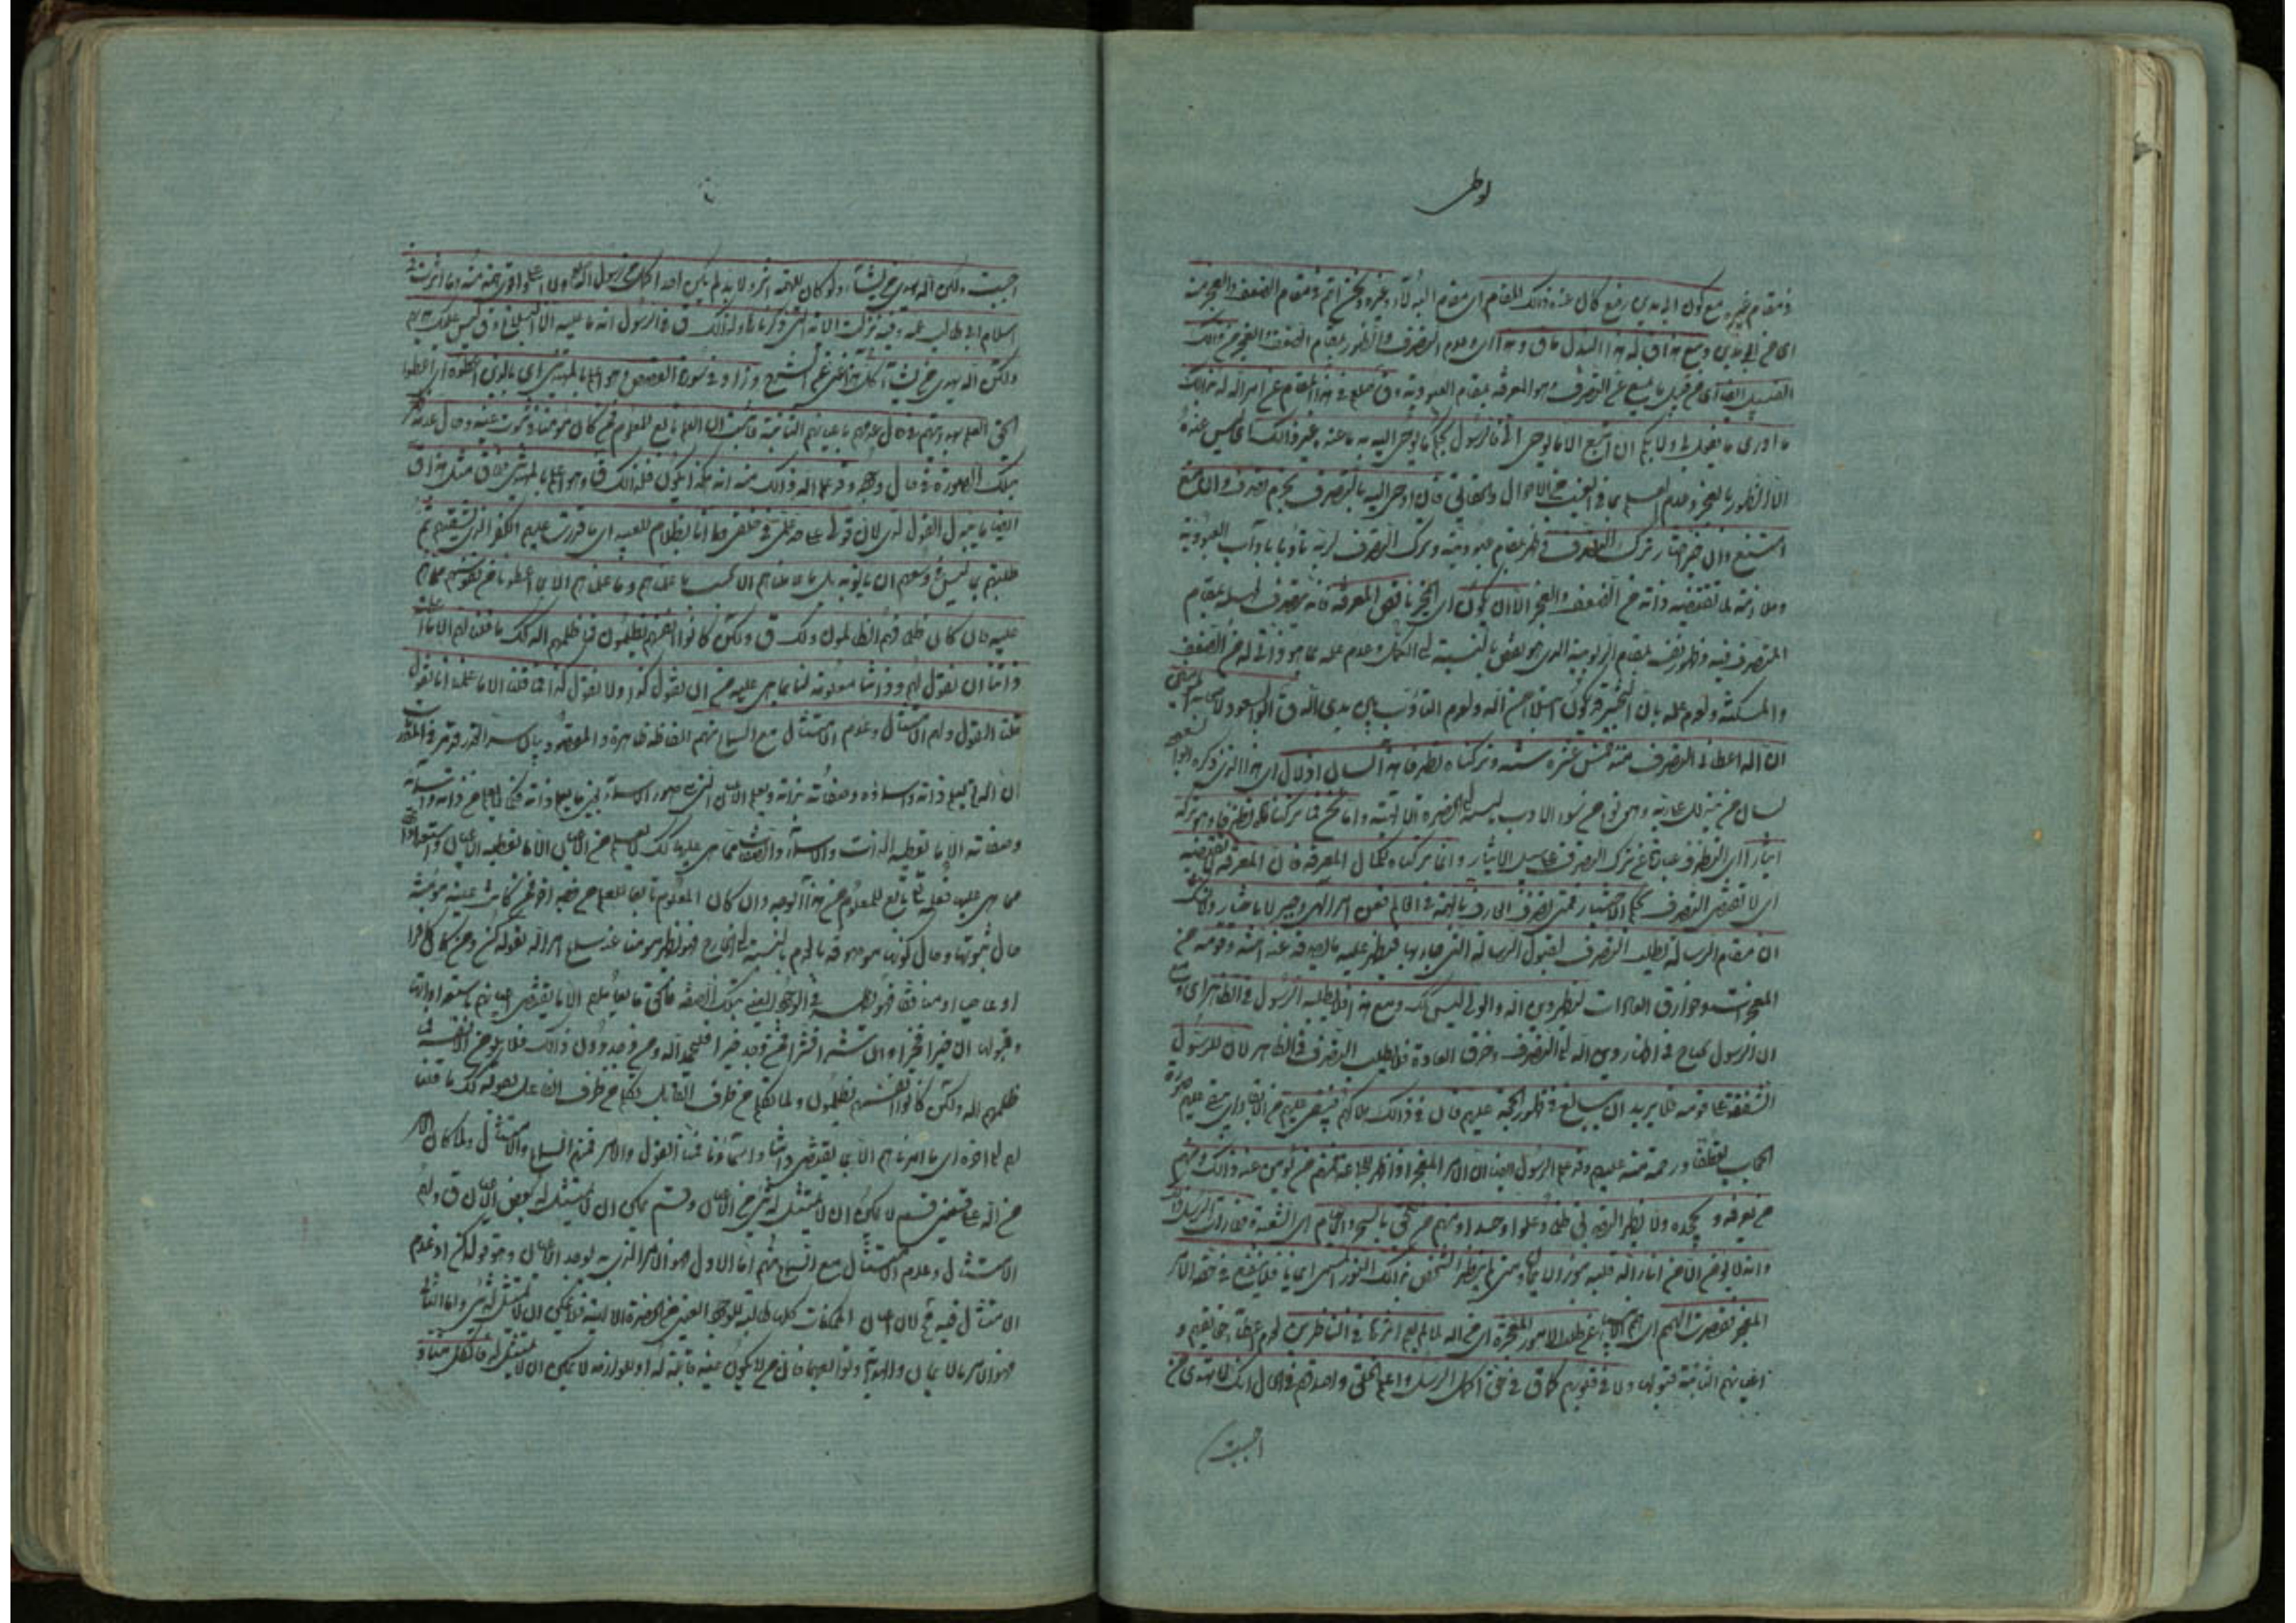 لوطى
فى مقام غيره مع كون ابى مدين رفيع كان عنده ذلك المقام اى مقام البدلاء وغيره ونحن اتم فى مقام الضعف والعجز منه
اى من ابى مدين ومع هذا قال له هذا البدل ما قال وهذا اى وعدم التصرف والظهور بمقام الضعف والعجز من ذلك
القبيل ايضا اى من قبيل ما يمنع عن التصرف وهو المعرفة بمقام العبودية وقال صلعم فى هذا المقام عن امر الله له بذلك
ما ادرى ما يفعل بى ولا بكم ان اتبع الا ما يوحى الى فالرسول بحكم ما يوحى اليه به ما عنده غير ذلك اى ليس عنده
الا الظهور بالعجز وعدم العلم بما فى الغيب من الاحوال والحقائق فان اوحى اليه بالتصرف بجزم تصرف وان منع
امتنع وان خير اختار ترك التصرف فى مقام عبوديته وترك التصرف لربه تأدبا بآداب العبودية
وملازمة لما تقتضيه ذاته من الضعف والعجز الا ان يكون اى المخير ناقص المعرفة فانه يتصرف لجهله بمقام
المتصرف فيه وظهور نفسه بمقام الربوبية الذى هو نقص بالنسبة الى الكمل وعدم علمه بما هو ذاتى له من الضعف
والمسكنة ولعدم علمه بان التخيير قد يكون ابتلاء من الله ولعدم التأدب بين يدى الله قال ابو السعود لاصحابه المؤمنين به
ان الله اعطانى التصرف منذ خمس عشرة سنة وتركناه تظرفا هذا لسان ادلال اى هذا الذى ذكره ابو السعود
لسان من يدل على ربه وهو نوع من سوء الادب بالنسبة الى الحضرة الالهية واما نحن فما تركناه تظرفا وهو تركه
ايثارا اى التظرف عبارة عن ترك التصرف على سبيل الايثار وانما تركناه لكمال المعرفة فان المعرفة لا تقتضيه
اى لا تقتضى التصرف بحكم الاختيار فمتى تصرف العارف بالهمة فى العالم فعن امر الهى وجبر لا باختيار ولا شك
ان مقام الرسالة يطلب التصرف لقبول الرسالة التى جاء بها فيظهر عليه ما يصدقه عند امته وقومه من
المعجزات وخوارق العادات ليظهر دين الله والولى ليس كذلك ومع هذا فلا يطلبه الرسول فى الظاهر اى ومع
ان الرسول يحتاج فى اظهار دين الله الى التصرف وخرق العادة فلا يطلب التصرف فى الظاهر لان للرسول
الشفقة على قومه فلا يريد ان يبالغ فى ظهور الحجة عليهم فان فى ذلك هلاكهم فيبقى عليهم من الابقاء اى يبقى عليهم صورة
الحجاب تعطفا ورحمة منه عليهم وقد علم الرسول ايضا ان الامر المعجز اذا ظهر للجماعة فمنهم من يؤمن عند ذلك ومنهم
من يعرفه ويجحده ولا يظهر التصديق به ظلما وعلوا وحسدا ومنهم من يلحق بالسحر والايهام اى الشعبذة فلما رأت الرسل ذلك
وانه لا يؤمن الا من انار الله قلبه بنور الايمان ومتى لم ينظر الشخص بذلك النور المسمى ايمانا فلا ينفع فى حقه الامر
المعجز فقصرت الهمم اى همم الانبياء عن طلب الامور المعجزة اى من الله لما لم يعم اثرها فى الناظرين لعدم اعطاء حقائقهم و
اعيانهم الثابتة قبولها ولا فى قلوبهم كما قال فى حق اكمل الرسل واعلم الخلق واصدقهم فى الحال انك لا تهدى من
احببت
احببت ولكن الله يهدى من يشاء ولو كان للهمة اثر ولا بد لم يكن احد اكمل من رسول الله ولا اعلى ولا اقوى همة منه وما اثرت فى
اسلام ابى طالب عمه وفيه نزلت الآية التى ذكرناها ولذلك قال فى الرسول انه ما عليه الا البلاغ وقال ليس عليك هديهم
ولكن الله يهدى من يشاء كل هذا غنى عن الشرح وزاد فى سورة القصص وهو اعلم بالمهتدين اى بالذين اعطوه اى اعطوا
الحق العلم بهدايتهم فى حال عدمهم باعيانهم الثابتة فاثبت ان العلم تابع للمعلوم فمن كان مؤمنا فى ثبوت عينه وحال عدمه ظهر
بتلك الصورة فى حال وجوده وقد علم الله ذلك منه انه هكذا يكون فلذلك قال وهو اعلم بالمهتدين فلما قال مثل هذا قال
ايضا ما يبدل القول لدى لان قولى على حد علمى فى خلقى وما انا بظلام للعبيد اى ما قدرت عليهم الكفر الذى يشقيهم ثم
طلبتهم بما ليس فى وسعهم ان يأتوا به بل ما عاملناهم الا بحسب ما علمناهم وما علمناهم الا بما اعطونا من نفوسهم مما هم
عليه فان كان ظلم فهم الظالمون ولذلك قال ولكن كانوا انفسهم يظلمون فما ظلمهم الله كذلك ما قلنا لهم الا ما اعطته
ذاتنا ان نقول لهم وذاتنا معلومة لنا بما هى عليه من ان نقول كذا ولا نقول كذا فما قلنا الا ما علمنا انا نقول
فلنا القول ولهم الامتثال وعدم الامتثال مع السماع منهم الفاظه ظاهرة والمقصود بيان سر القدر
ان الله يعلم ذاته واسماءه وصفاته بذاته ويعلم الاعيان التى هى صور الاسماء
وصفاته الا ما تعطيه الذات والاسماء والصفات مما هى عليها كذلك لا يعلم من الاعيان الا ما تعطيه الاعيان واستعداداتها
مما هى عليه فعلمه تعالى تابع للمعلوم من هذا الوجه وان كان المعلوم تابعا للعلم من وجه آخر فمن كانت عينه مؤمنة
حال ثبوتها وحال كونها موصوفة بالعدم بالنسبة الى الخارج فهو يظهر مؤمنا عند سماع امر الله بقوله كن ومن كان كافرا
او عاصيا او منافقا فهو يظهر فى الوجود العينى بتلك الصفة فالحق ما يعاملهم الا بما يقتضى اعيانهم باستعداداتها
وقبولها ان خيرا فخيرا وان شرا فشرا فمن وجد خيرا فليحمد الله ومن وجد دون ذلك فلا يلومن الا نفسه فما
ظلمهم الله ولكن كانوا انفسهم يظلمون ولما تكلم من طرف القابل تكلم من طرف الفاعل بقوله كذلك ما قلنا
لهم الى آخره اى ما امرناهم الا بما يقتضى ذاتنا واسماؤنا فمنا القول والامر فمنهم السماع والامتثال ولما كان الامر
من الله على قسمين قسم لا يمكن ان لا يمتثل له شىء من الاعيان وقسم يمكن ان لا يمتثل له بعض الاعيان قال ولهم
الامتثال وعدم الامتثال مع السماع منهم اما الاول فهو الامر الذى به توجد الاعيان وهو قوله كن وعدم
الامتثال فيه محال لان اعيان الممكنات كلها طالبة للوجود العينى من الحضرة الالهية فلا يمكن ان لا يمتثل له شىء واما الثانى
فهو الامر بالايمان والهداية وتوابعهما فان من لا يكون عينه قابلة له او للوازمه لا يمكن ان لا يمتثل له فالكل منا و